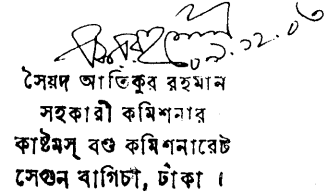 ০৯.১২.০৬
সৈয়দ আতিকুর রহমান
সহকারী কমিশনার
কাষ্টমস্ বণ্ড কমিশনারেট
সেগুন বাগিচা, ঢাকা ।